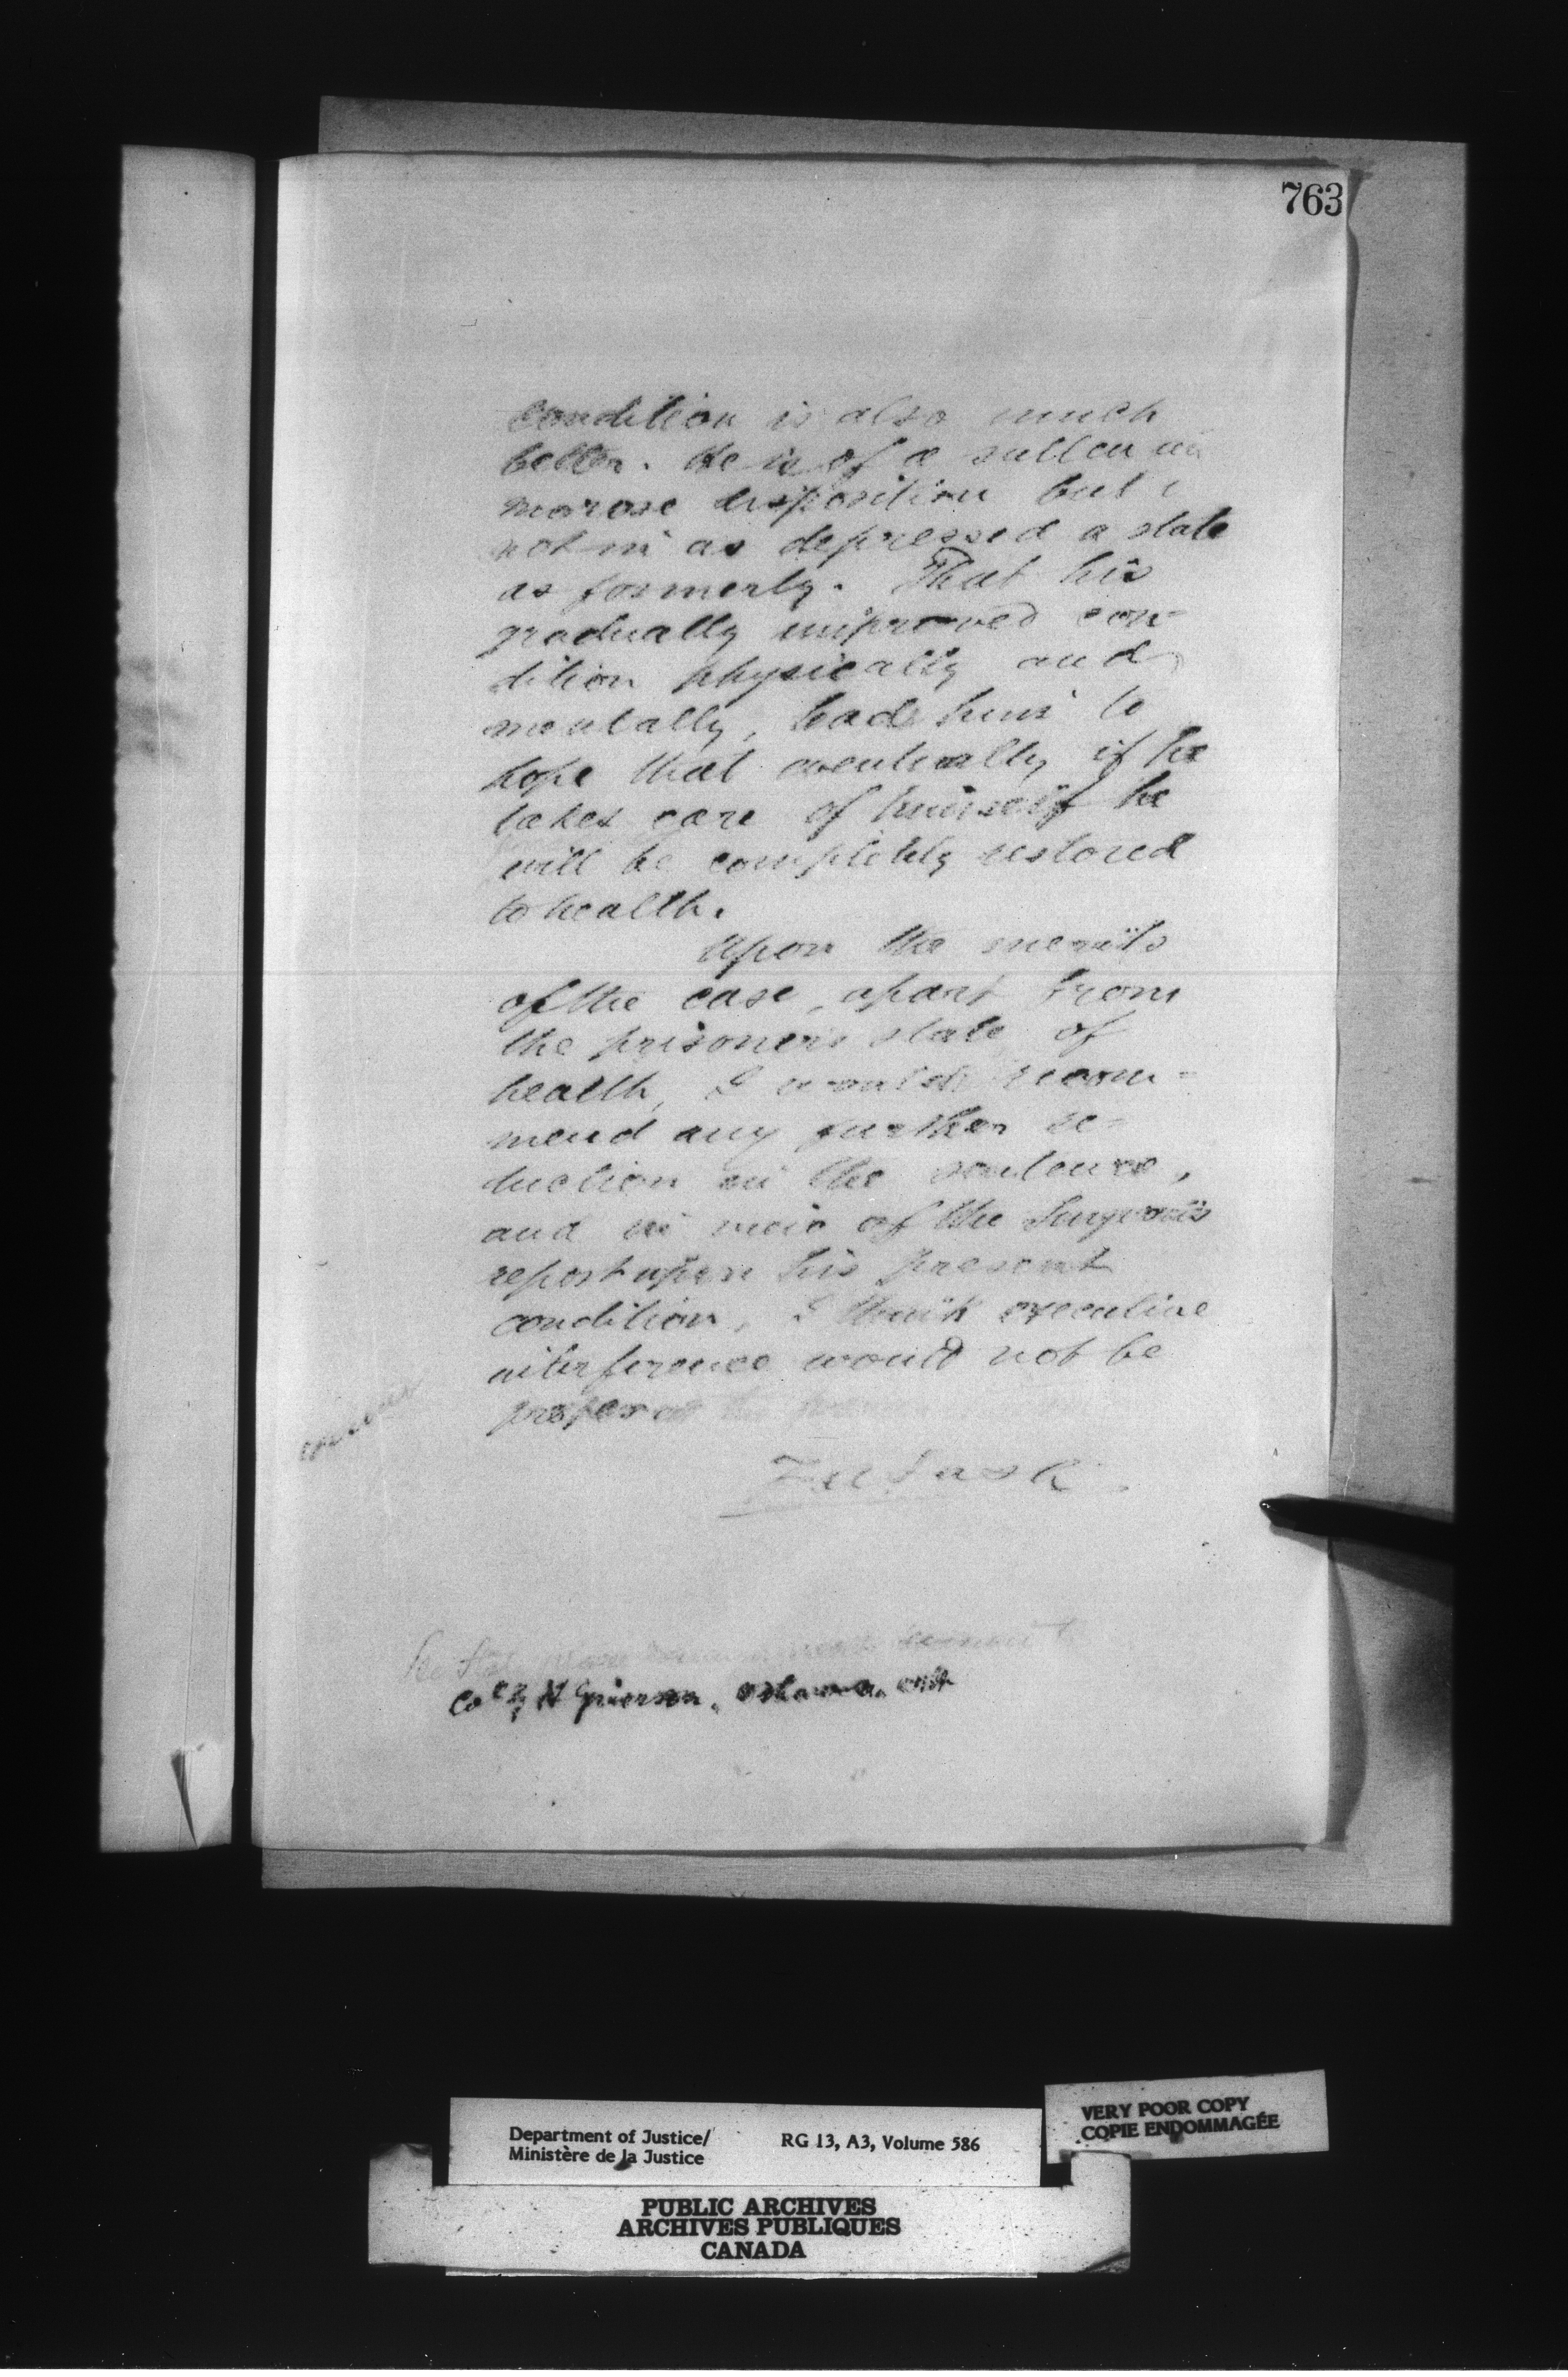 763
condition is also much
better. He is of a sullen
morose disposition but
not in as depressed a state
as formerly. That his
gradually improved con-
dition physically and
mentally, leads him to
hope that eventually if he
takes care of himself he
will be completely restored
to health.
Upon the merits
of the case, apart from
the prisoner's state of
health, I recom-
mend any further re-
duction in the sentence,
and in view of the Surgeon's
report upon his present
condition, I think executive
interference would not be
proper
Col H Grierson, Oshawa, Ont
VERY POOR COPY
COPIE ENDOMMAGÉE
Department of Justice/
Ministère de la Justice
RG 13, A3, Volume 586
PUBLIC ARCHIVES
ARCHIVES PUBLIQUES
CANADA